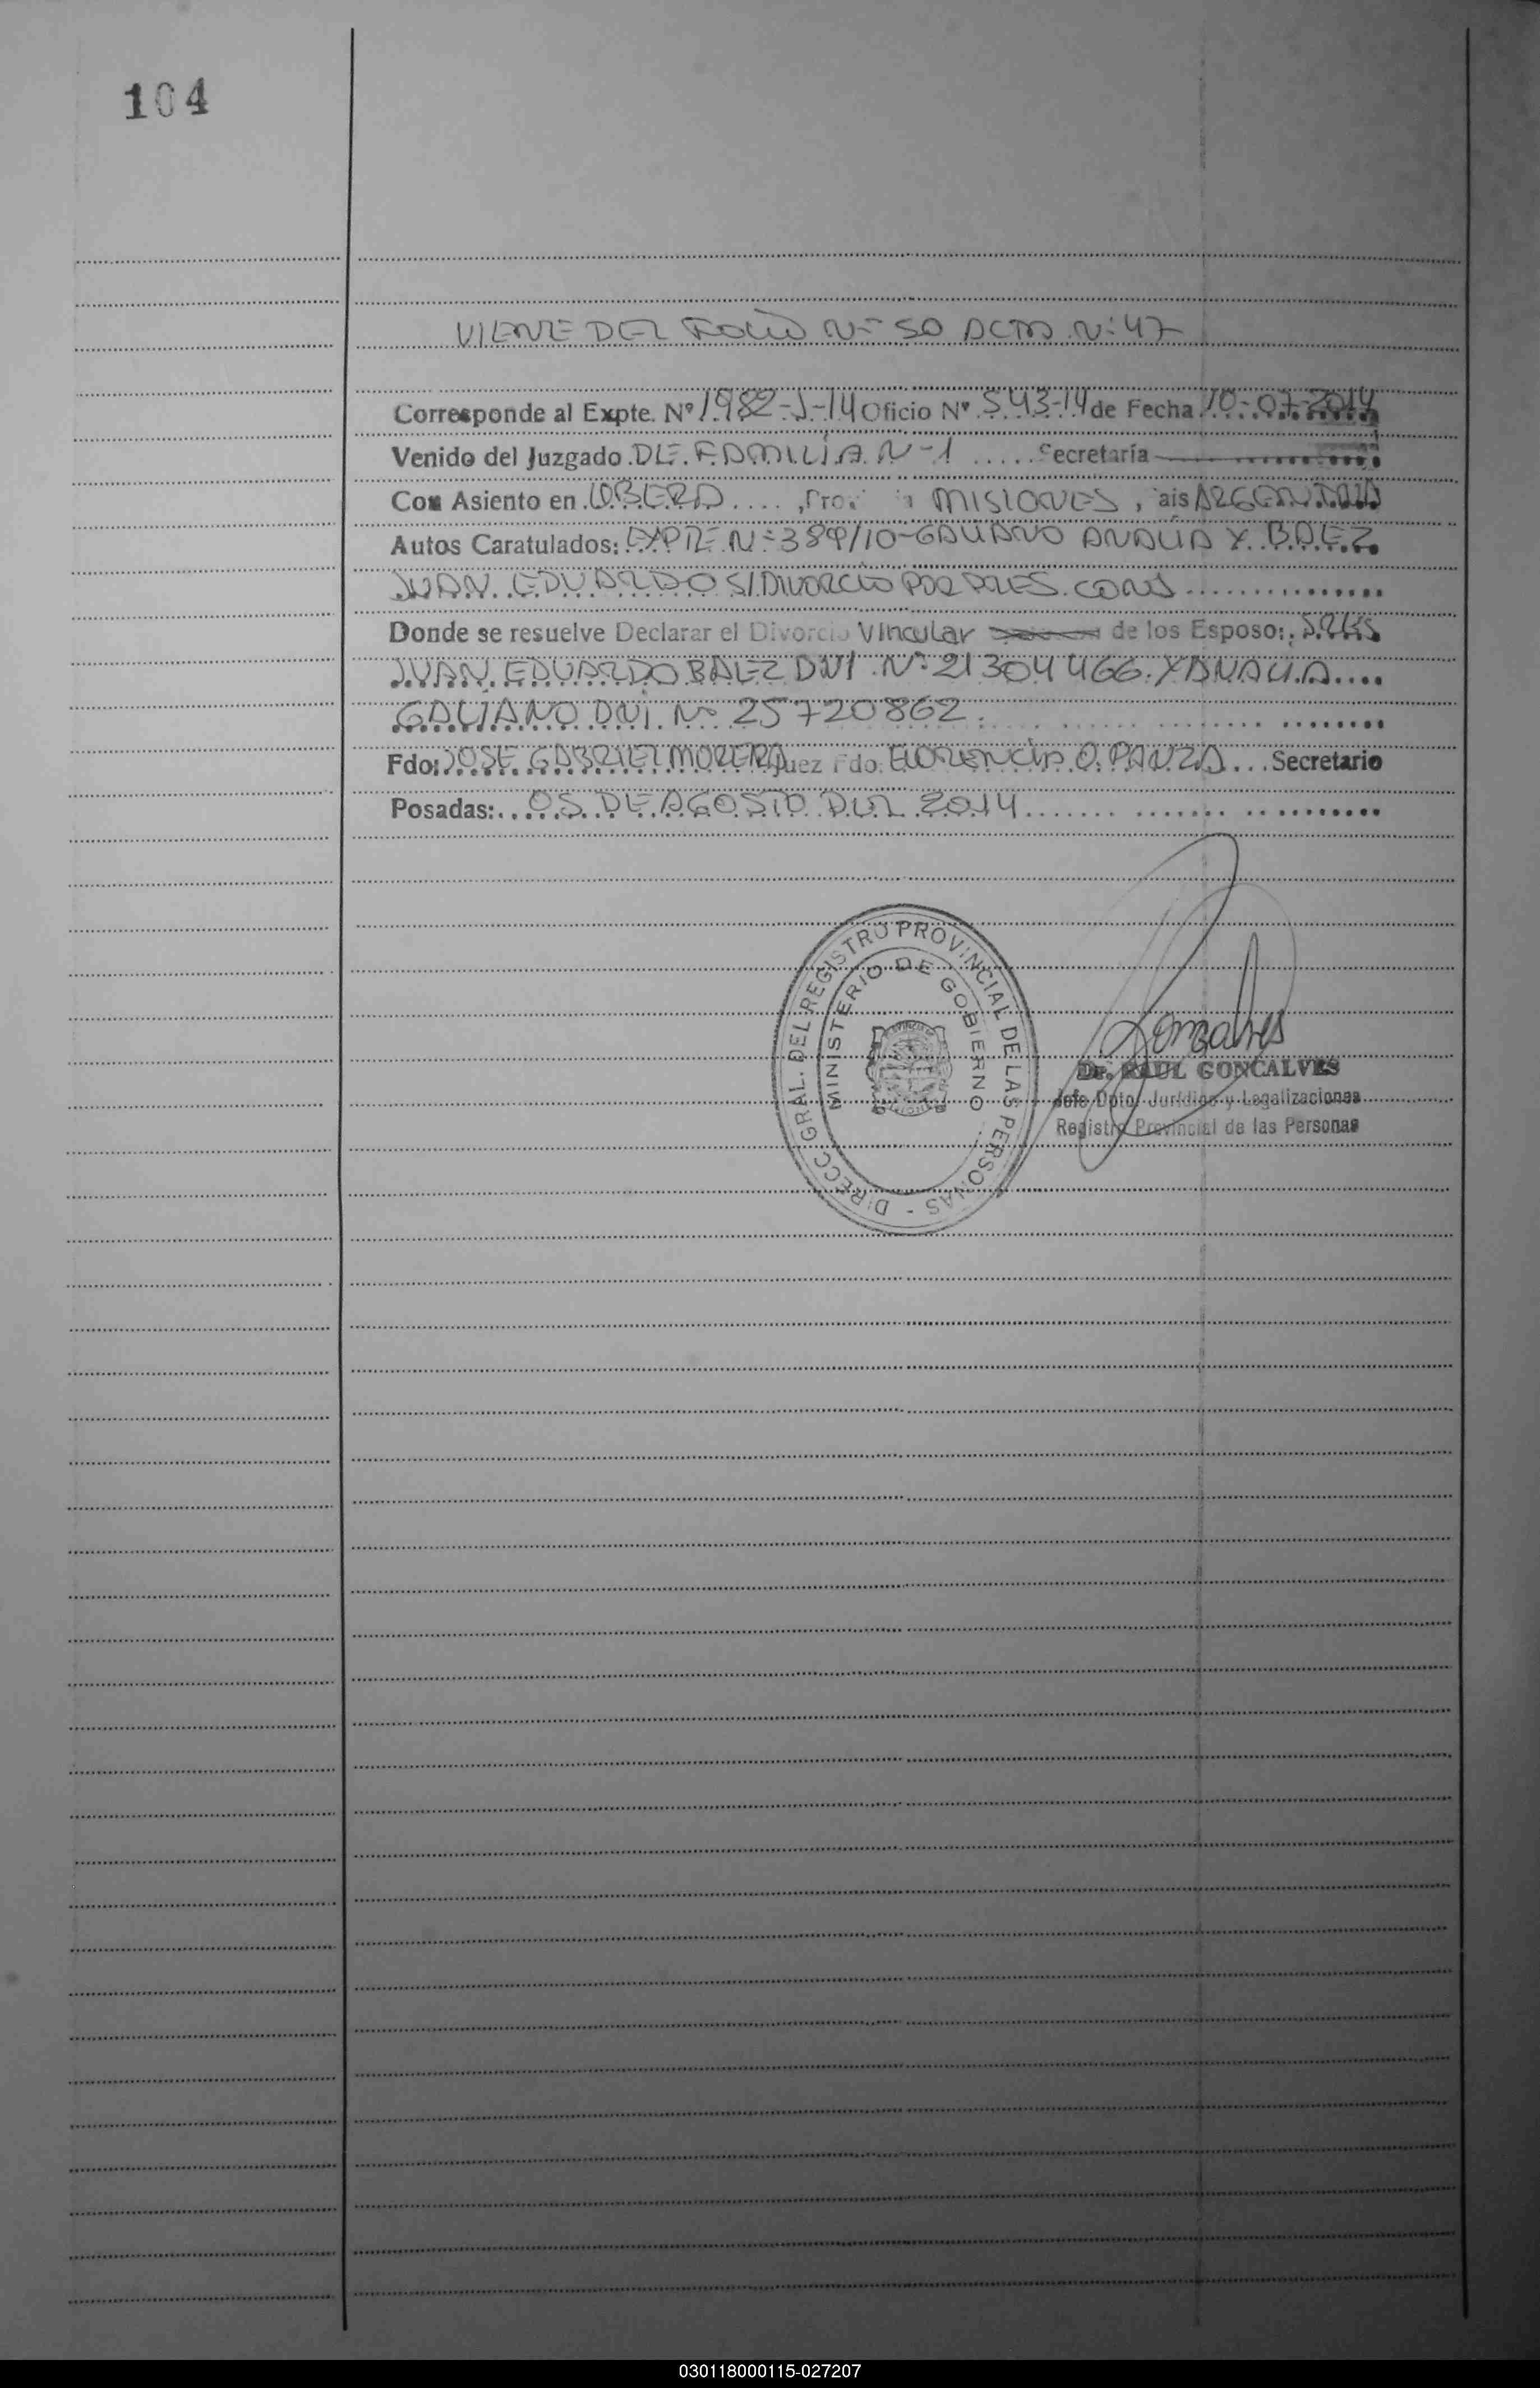 104
VIENE DEL FOLIO Nº 50 ACTA Nº 47
Corresponde al Expte. Nº 1982-J-14 Oficio Nº 543-14 de Fecha 10-07-2014
Venido del Juzgado DE FAMILIA Nº 1 Secretaría
Con Asiento en OBERA, Prov MISIONES, País ARGENTINA
Autos Caratulados: EXPTE Nº 389/10-GALIANO ANALIA Y BAEZ
JUAN EDUARDO S/DIVORCIO POR PRES. CONJ
Donde se resuelve Declarar el Divorcio Vincular de los Esposo: SRES
JUAN EDUARDO BAEZ DNI Nº 21304466 Y ANALIA
GALIANO DNI Nº 25720862.
Fdo: JOSE GABRIEL MOREIRA Juez Fdo: FLORENCIA O. PANZA Secretario
Posadas: 05 DE AGOSTO DEL 2014
DIRECC. GRAL. DEL REGISTRO PROVINCIAL DE LAS PERSONAS -
MINISTERIO DE GOBIERNO
Goncalves
Dr. RAUL GONCALVES
Jefe Dpto. Jurídico y Legalizaciones
Registro Provincial de las Personas
030118000115-027207